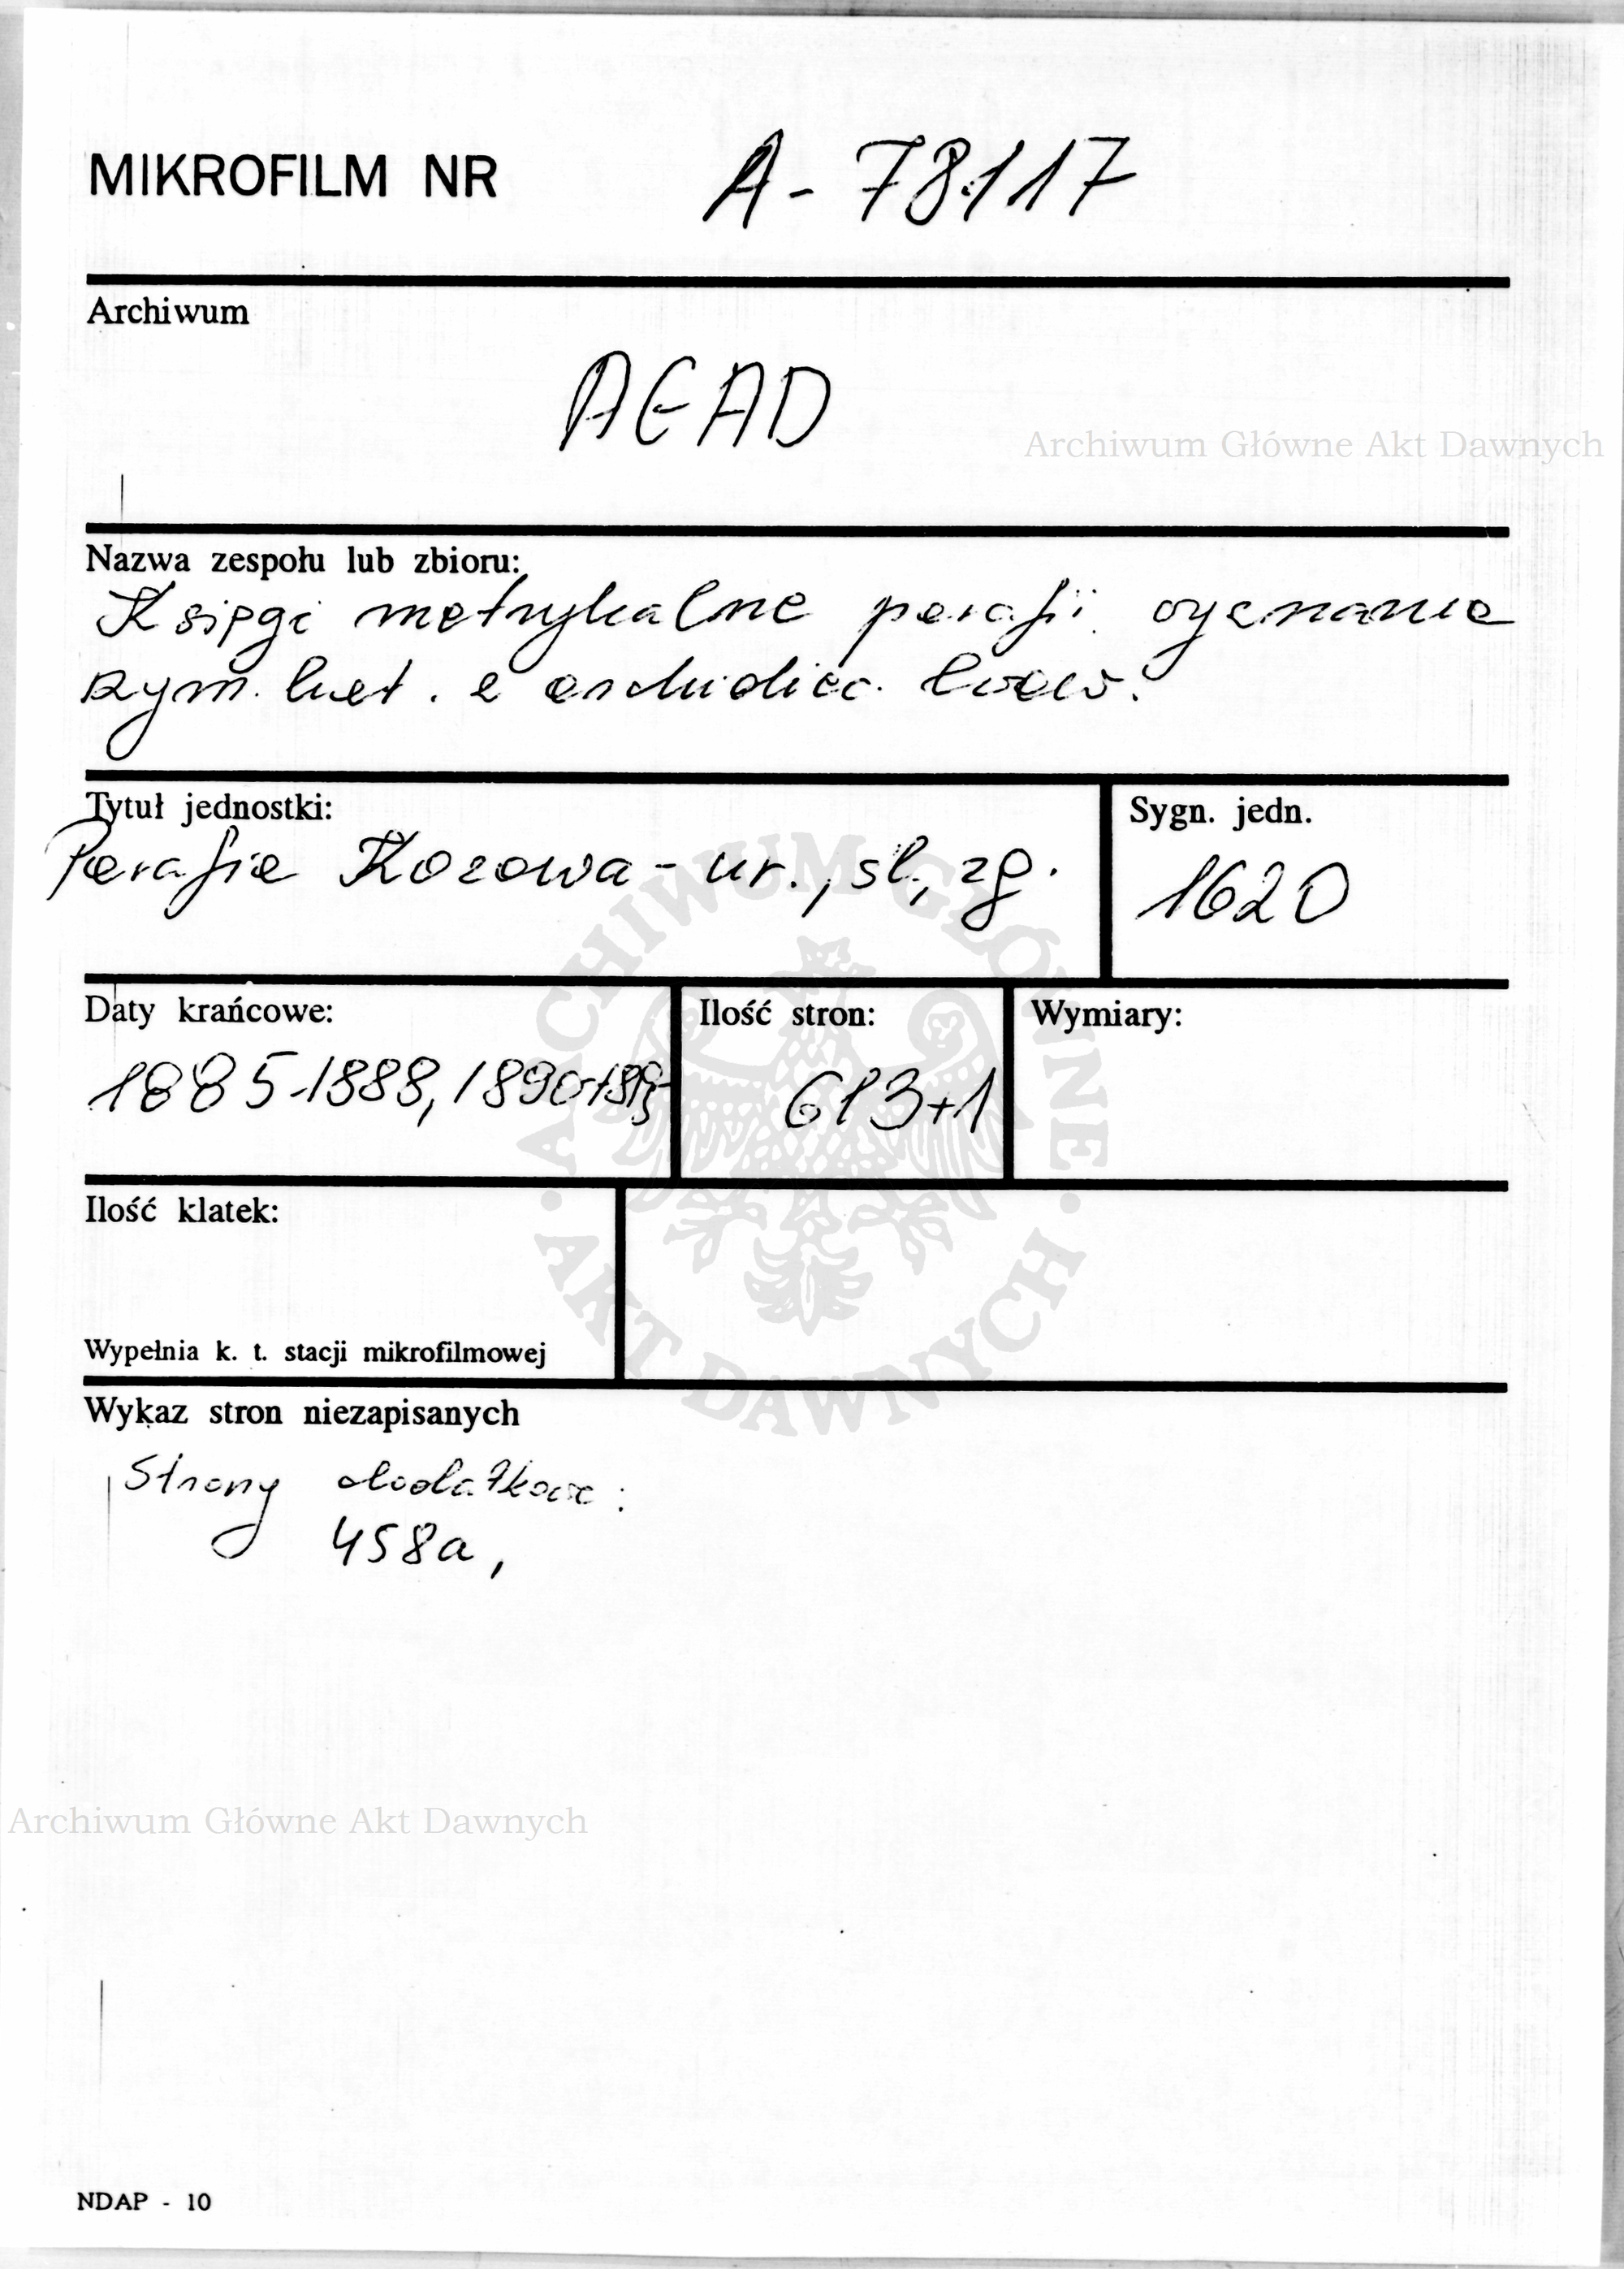 MIKROFILM NR A-78117
Archiwum
AGAD
Archiwum Główne Akt Dawnych
Nazwa zespołu lub zbioru:
Księgi metrykalne parafii wyznania
rzym. kat. z archidiec. lwow.
Tytuł jednostki:
Parafia Kozowa - ur., śl., zg.
Sygn. jedn.
1620
Daty krańcowe:
1885-1888, 1890-1895
Ilość stron:
613+1
Wymiary:
Ilość klatek:
Wypełnia k. t. stacji mikrofilmowej
ARCHIWUM GŁÓWNE AKT DAWNYCH
Wykaz stron niezapisanych
Strony dodatkowe:
458a,
Archiwum Główne Akt Dawnych
NDAP - 10